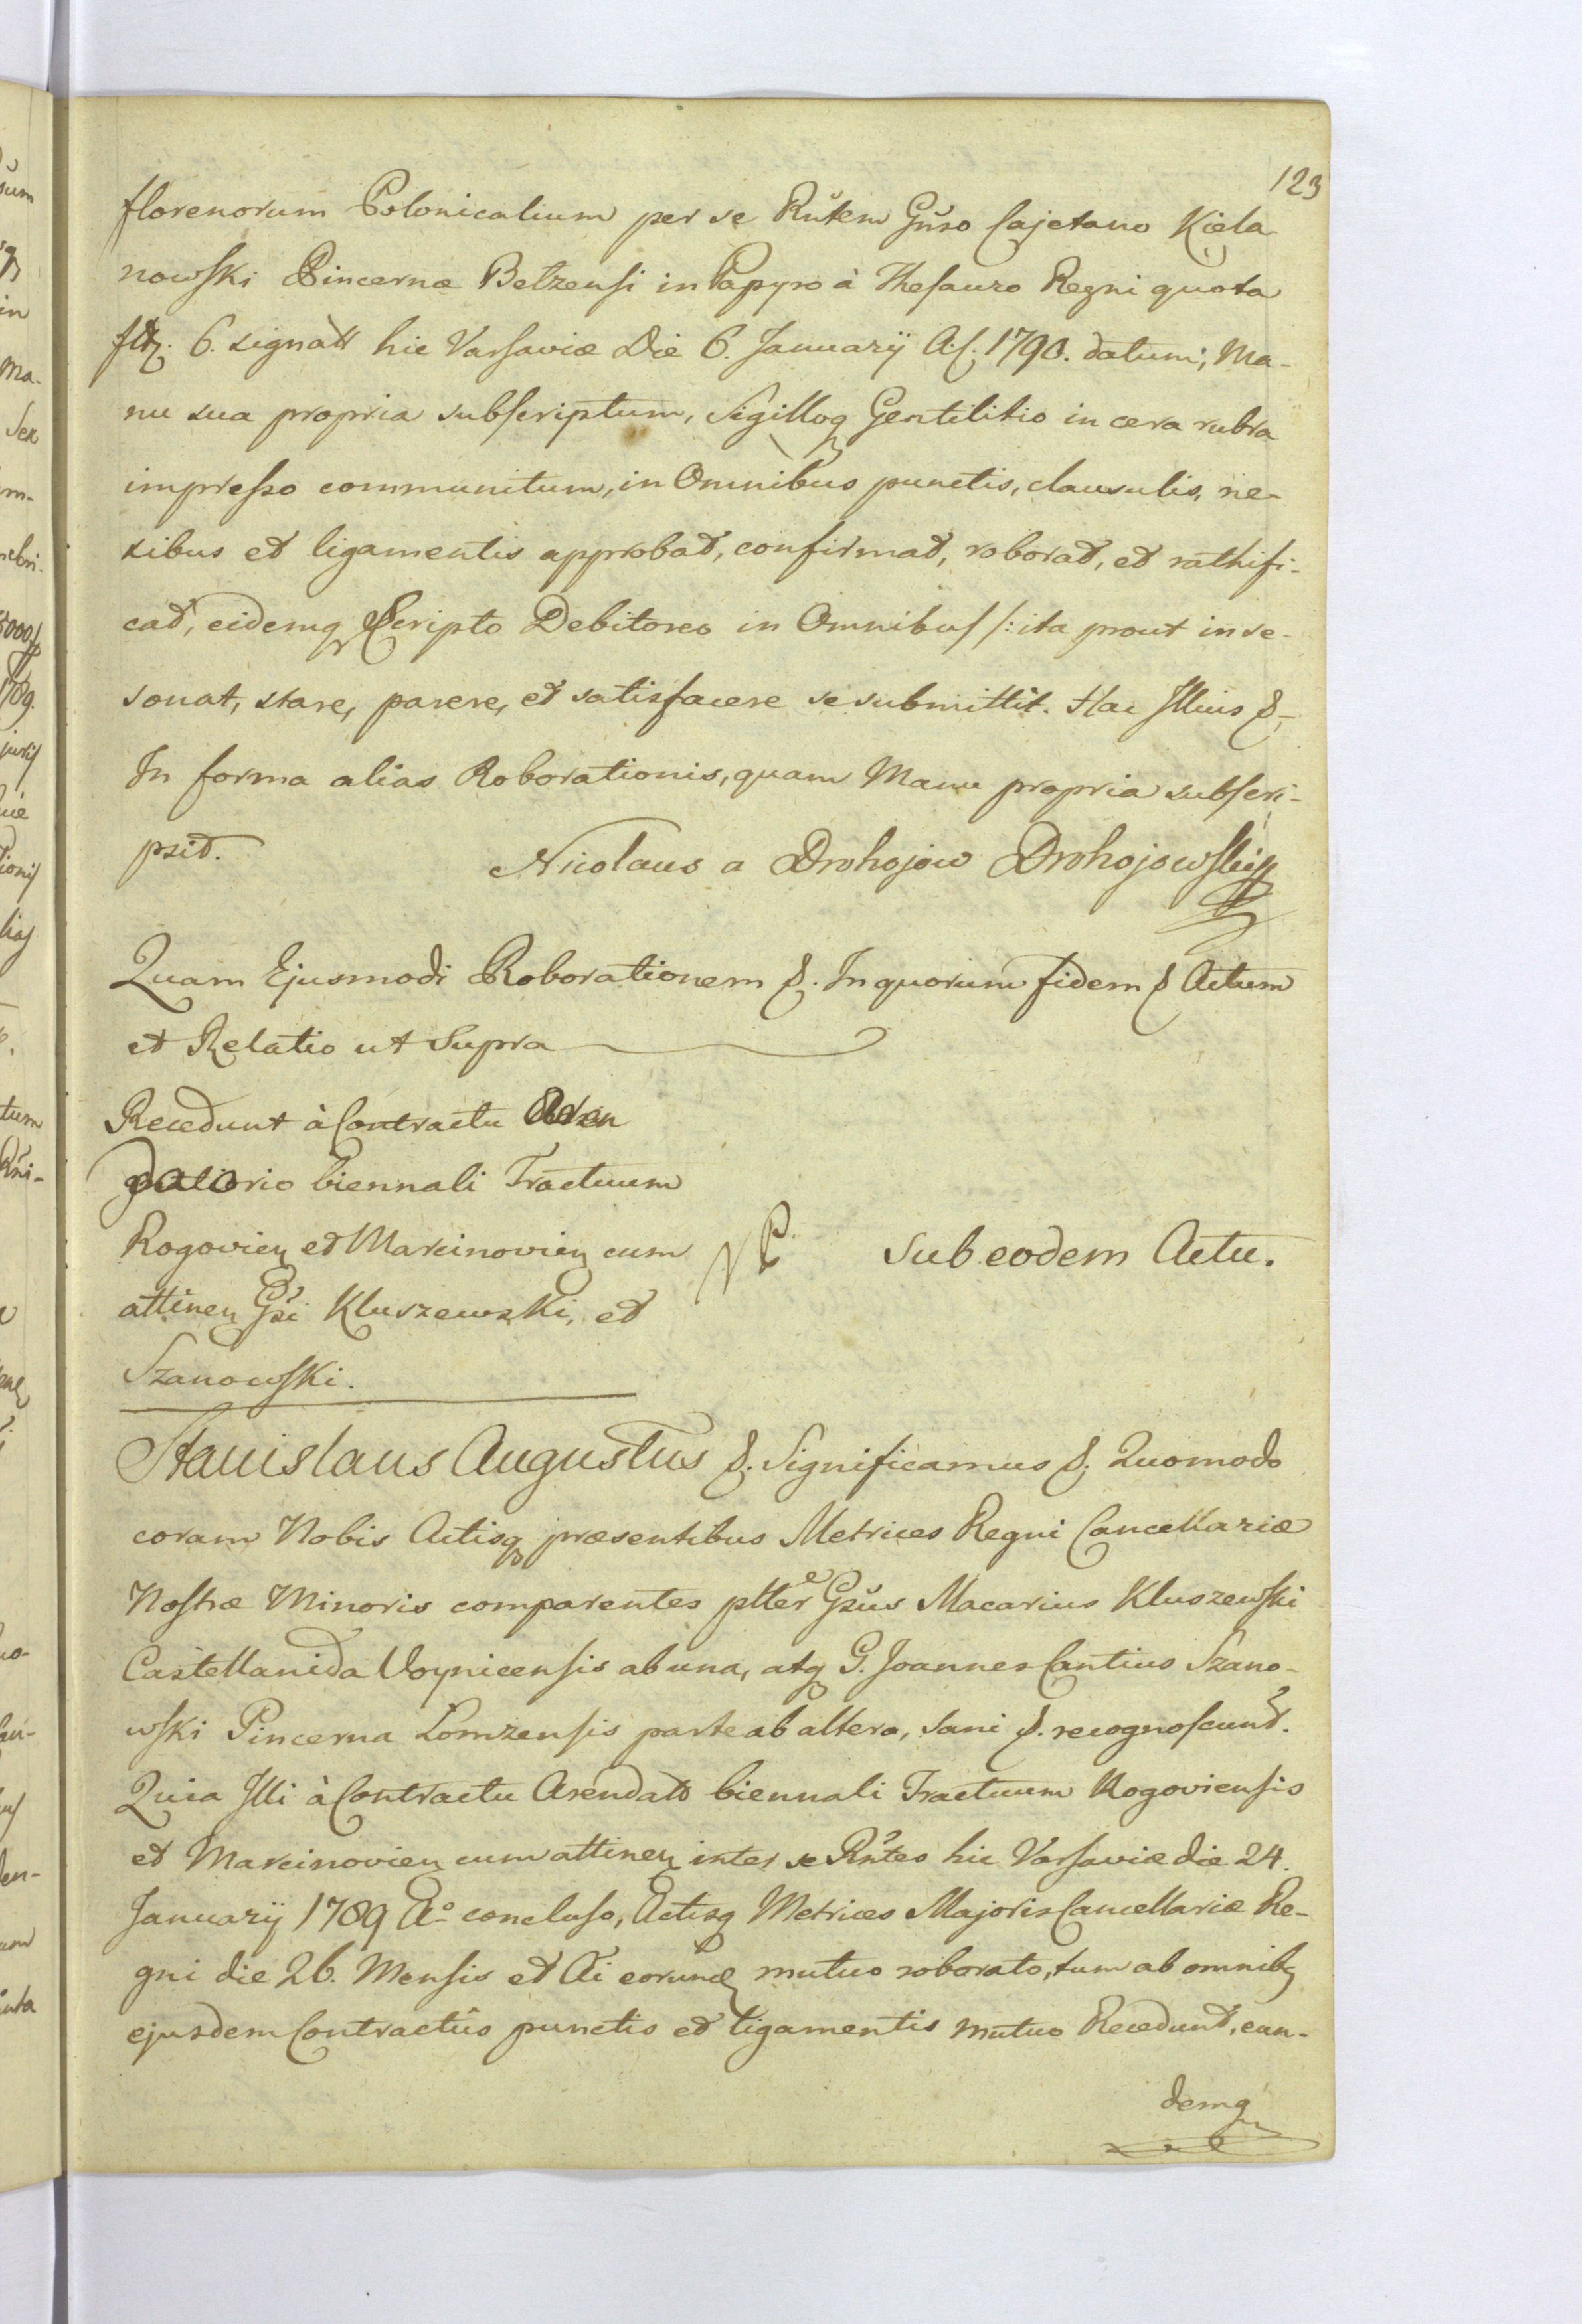 123
florenorum Polonicalium per se Rñtem Gñso Cajetano Kiela
nowski Pincernæ Betzensi in Papyro à Thesauro Regni quota
6. signatt hic Varsaviæ Die 6. Januarÿ A.C. 1790. datum; Ma-
nu sua propria subscriptum, Sigilloq Gentilitio in cera rubra
impresso communitum, in Omnibus punctis, clausulis, ne-
xibus et ligamentis approbat, confirmat, roborat, et rathifi-
cat, eidemq Scripto Debitoreo in Omnibus /: ita prout in se-
sonat, stare, parere, et satisfacere se submittit. Hac Illius &
In forma alias Roborationis, quam Manu propria subscri-
psit. Nicolaus a Drohojow Drohojowski
Quam Ejusmodi Roborationem &. In quorum fidem & Actum
et Relatio ut Supra
Recedunt à Contractu Aren
datorio biennali Tractuum
Rogovien et Marcinovien cum
attinen Gsi Kluszewski, et
Szanowski.
sub eodem Actu.
Stanislaus Augustus &. Significamus &. Quomodo
coram Nobis Actisq præsentibus Metrices Regni Cancellariæ
Nostræ Minoris comparentes pltter Gsus Macarius Kluszewski
Castellanida Voynicensis ab una, atq G. Joannes Cantius Szano-
wski Pincerna Lomzensis parte ab altera, sani &. recognoscunt.
Quia Illi à Contractu Arendatt biennali Tractuum Rogoviensis
et Marcinovien cum attinen inter se Rñtes hic Varsaviæ die 24.
Januarÿ 1789 Aº concluso, Actisq Metrices Majoris Cancellariæ Re-
gni die 26. Mensis et Ai eorund mutuo roborato, tum ab omnibq
ejusdem Contractûs punctis et ligamentis mutuo Recedunt, eun-
demq